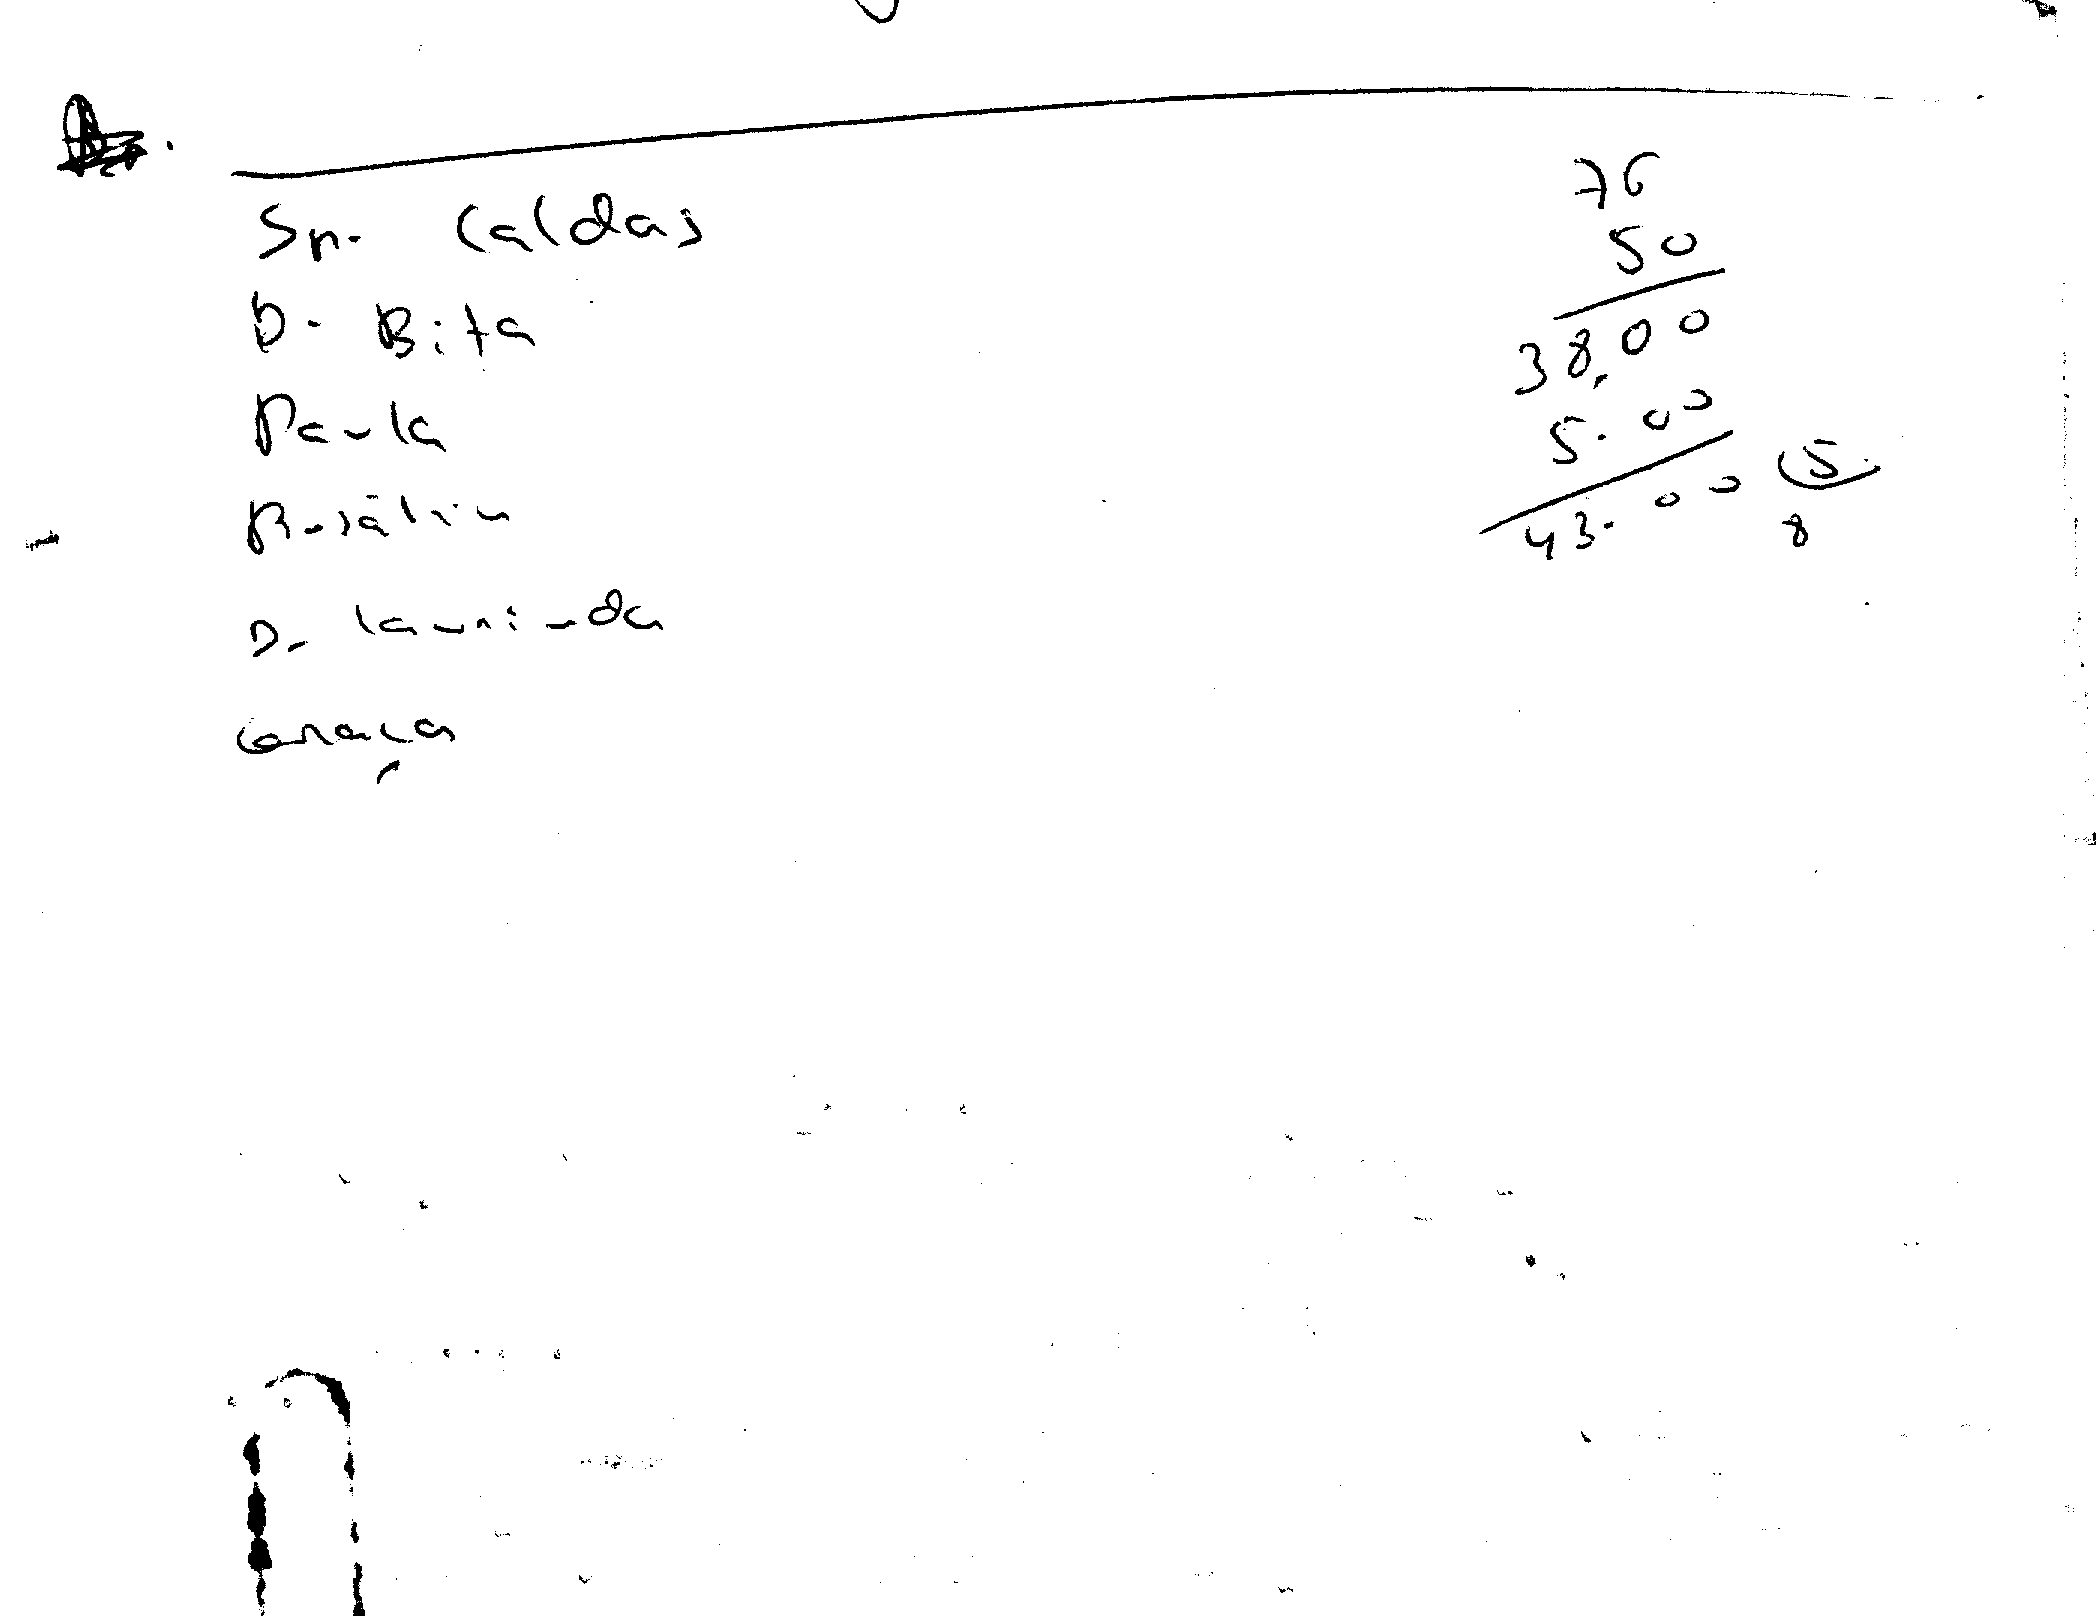 Sr. Caldas
D. Bita
Paula
Rosália
D. Laurinda
Graça
76
50
38,00
5.00
43.00 5
8